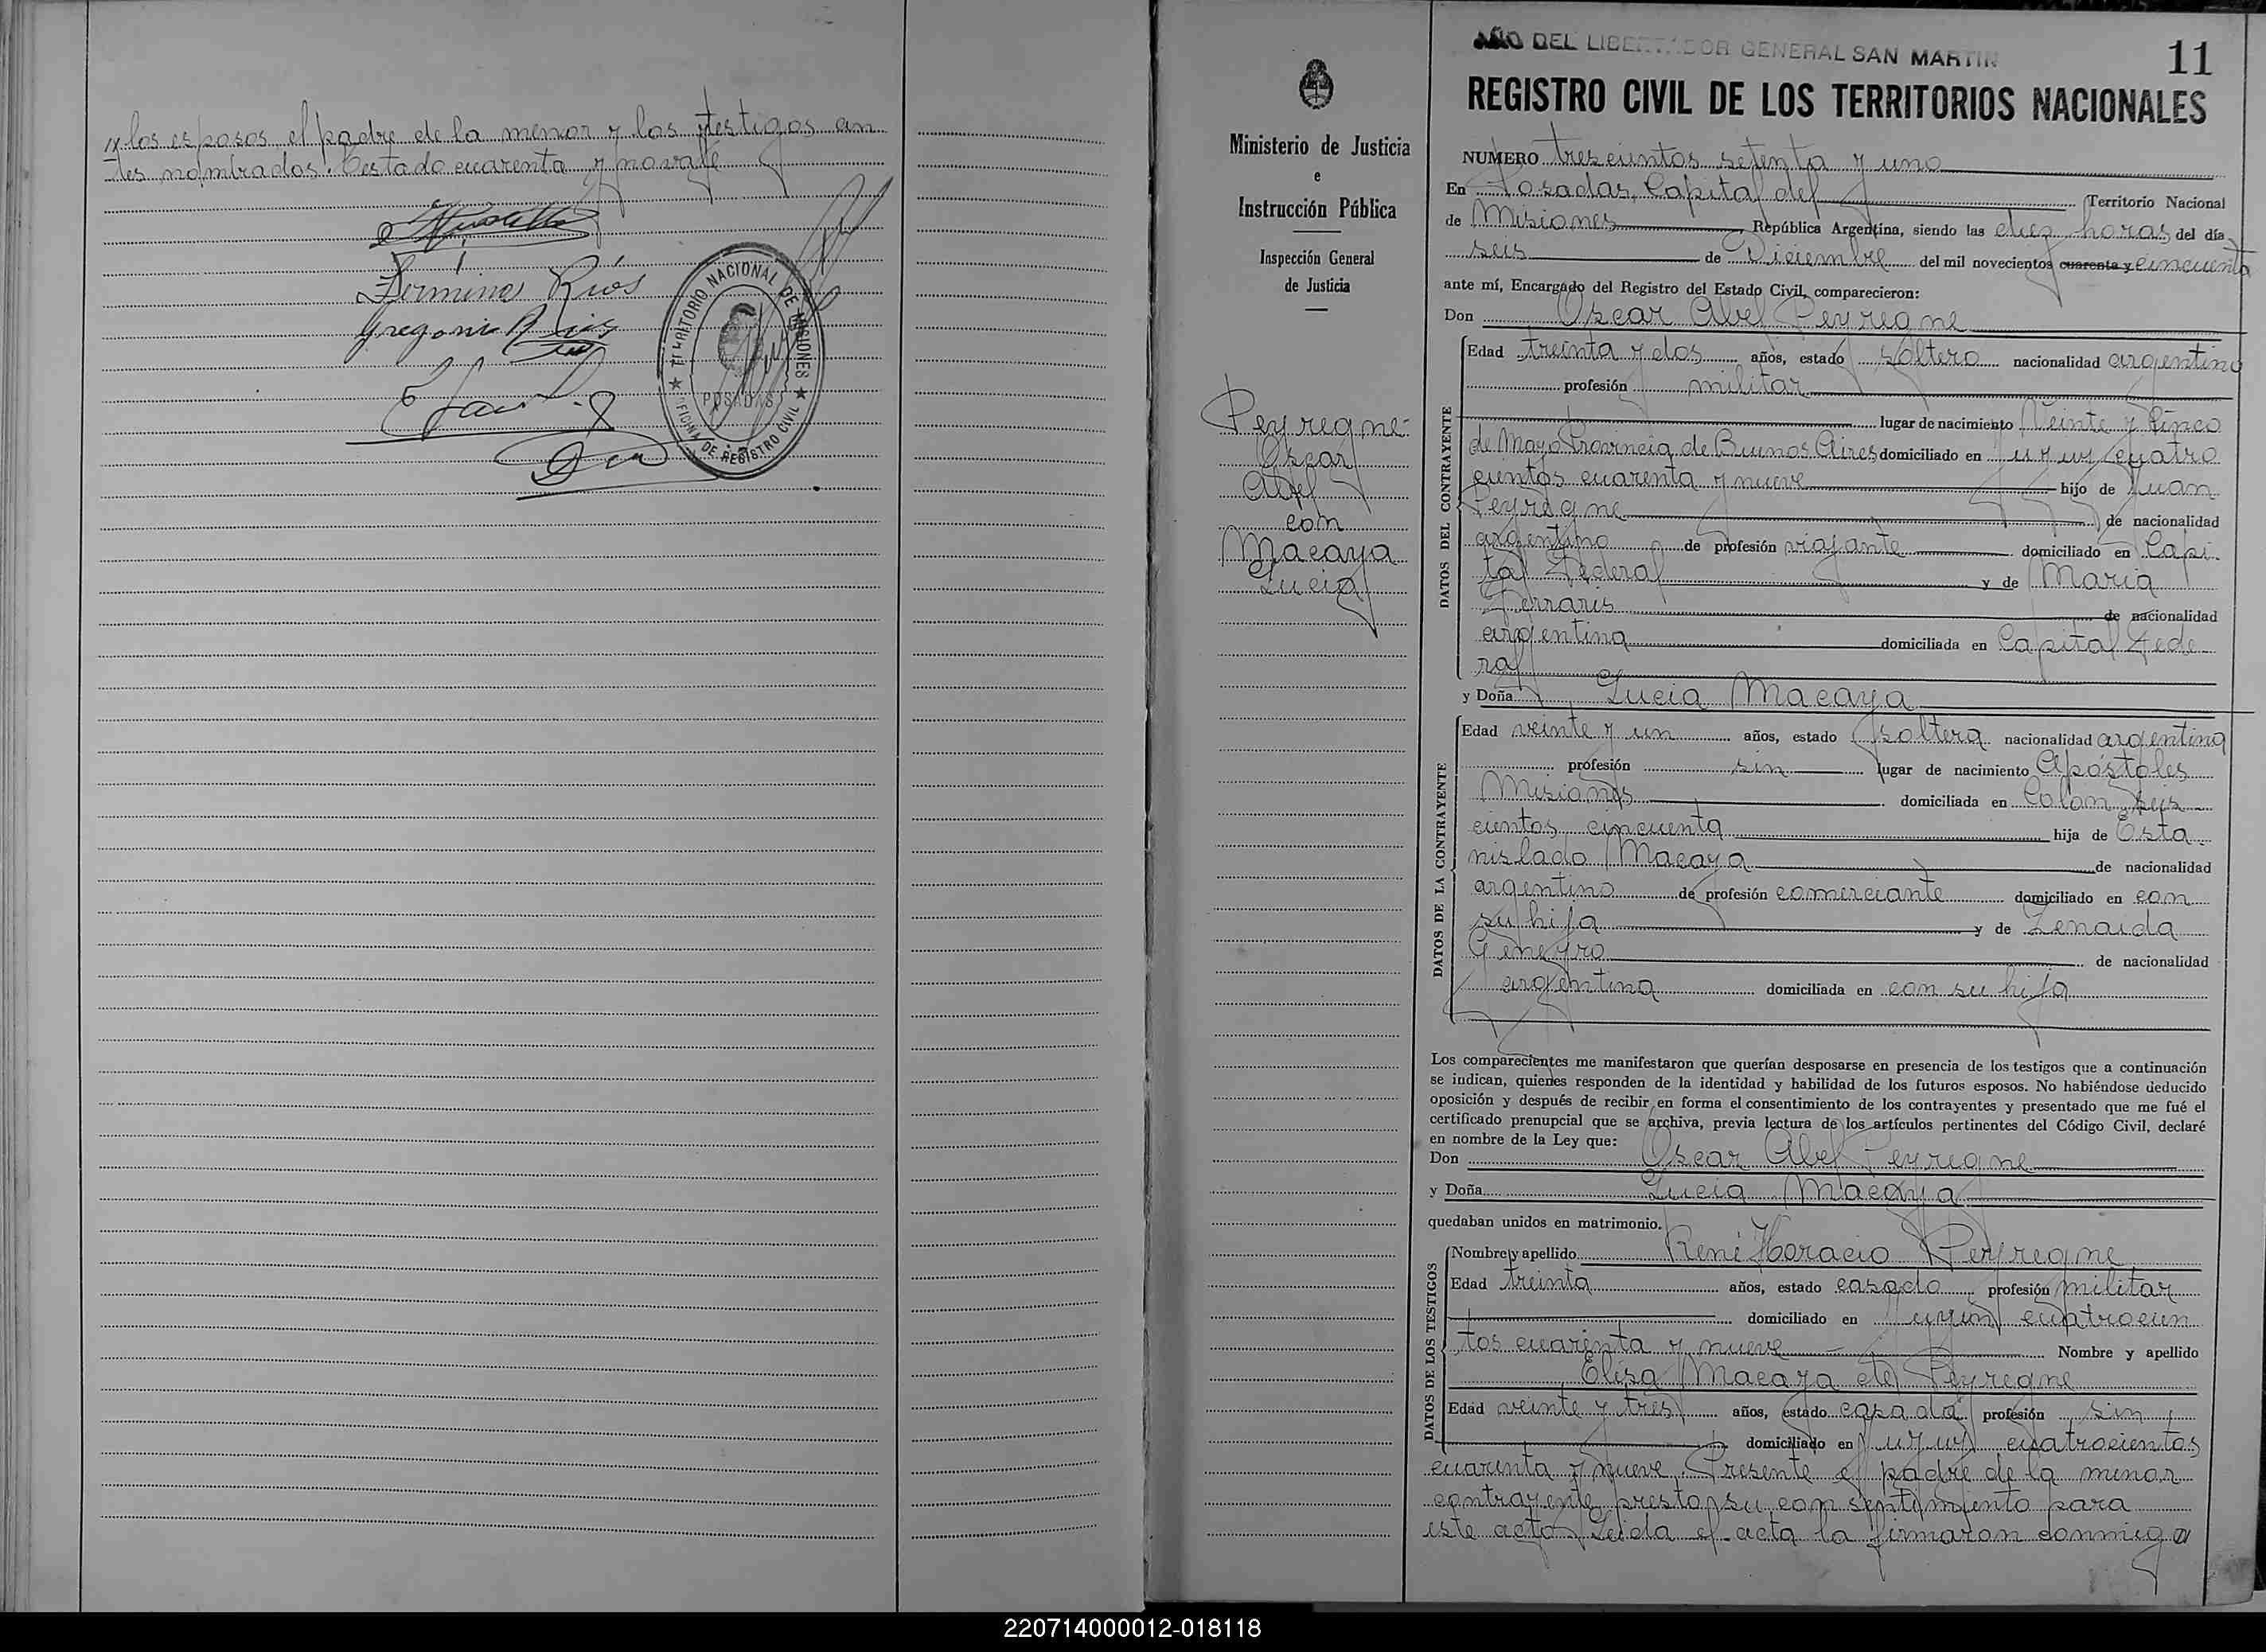 y los esposos el padre de la menor y los testigos an
tes nombrados. Testado cuarenta y novale
Fermina Rios
Gregorio Rios
TERRITORIO NACIONAL DE MISIONES
POSADAS
OFICINA DE REGISTRO CIVIL
Ministerio de Justicia
e
Instrucción Pública
Inspección General
de Justicia
Peyregne
Oscar
Abel
con
Macaya
Lucia
AÑO DEL LIBERTADOR GENERAL SAN MARTIN
11
REGISTRO CIVIL DE LOS TERRITORIOS NACIONALES
NUMERO trescientos setenta y uno
En Posadas, Capital del Territorio Nacional
de Misiones República Argentina, siendo las diez horas del día
seis de Diciembre del mil novecientos cuarenta y cincuenta
ante mí, Encargado del Registro del Estado Civil, comparecieron:
Don Oscar Abel Peyregne
DATOS DEL CONTRAYENTE
Edad treinta y dos años, estado soltero nacionalidad argentino
profesión militar
lugar de nacimiento Veinte y Cinco
de Mayo Provincia de Buenos Aires domiciliado en Jujuy cuatro
cientos cuarenta y nueve hijo de Juan
Peyregne de nacionalidad
argentino de profesión viajante domiciliado en Capi
tal Federal y de Maria
Ferraris de nacionalidad
argentina domiciliada en Capital Fede
ral
y Doña Lucia Macaya
DATOS DE LA CONTRAYENTE
Edad veinte y un años, estado soltera nacionalidad argentina
profesión sin lugar de nacimiento Apóstoles
Misiones domiciliada en Colón seis
cientos cincuenta hija de Esta
nislado Macaya de nacionalidad
argentino de profesión comerciante domiciliado en con
su hija y de Zenaida
Geneyro de nacionalidad
argentina domiciliada en con su hija
Los comparecientes me manifestaron que querían desposarse en presencia de los testigos que a continuación
se indican, quienes responden de la identidad y habilidad de los futuros esposos. No habiéndose deducido
oposición y después de recibir en forma el consentimiento de los contrayentes y presentado que me fué el
certificado prenupcial que se archiva, previa lectura de los artículos pertinentes del Código Civil, declaré
en nombre de la Ley que:
Don Oscar Abel Peyregne
y Doña Lucia Macaya
quedaban unidos en matrimonio.
DATOS DE LOS TESTIGOS
Nombre y apellido René Horacio Peyregne
Edad treinta años, estado casado profesión militar
domiciliado en Jujuy cuatrocien
tos cuarenta y nueve Nombre y apellido
Elisa Macaya de Peyregne
Edad veinte y tres años, estado casada profesión sin
domiciliado en Jujuy cuatrocientos
cuarenta y nueve. Presente el padre de la menor
contrayente presto su consentimiento para
este acto. Leida el acta la firmaron conmigo
220714000012-018118